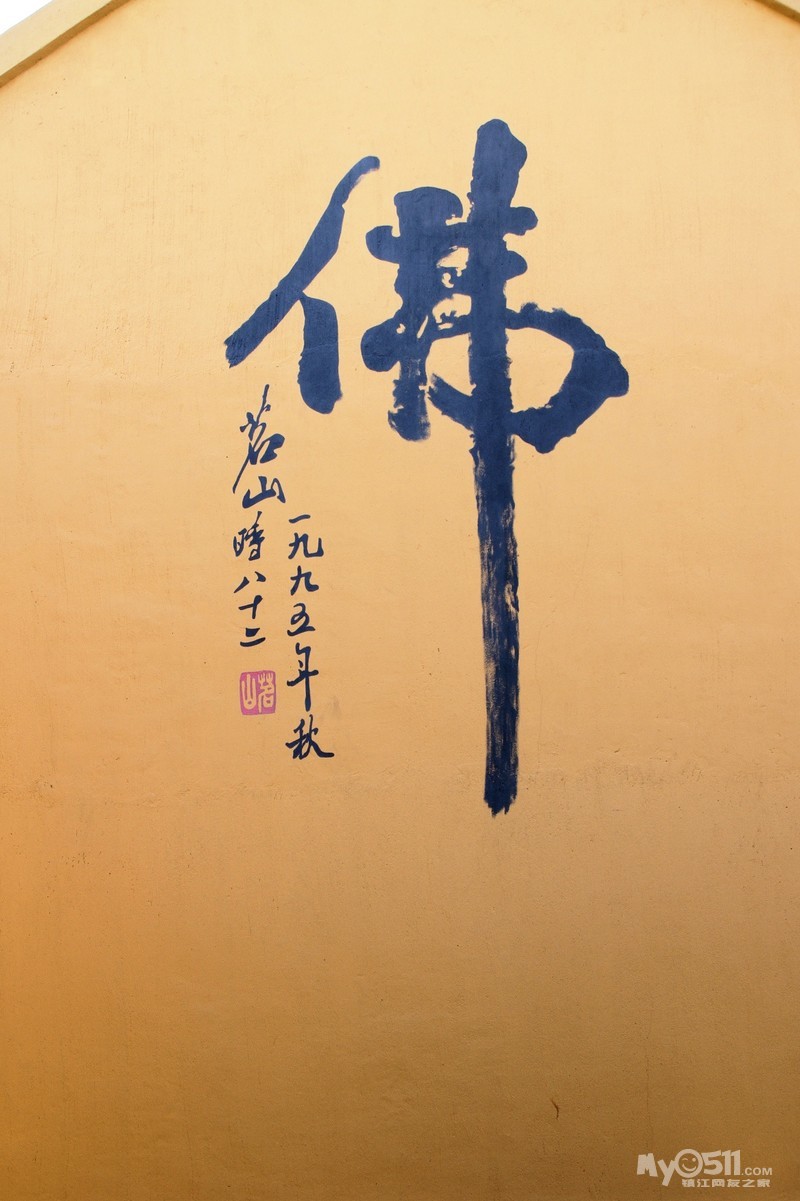 佛
一九九五年秋
茗山時八十二
茗山
My0511.com
镇江网友之家